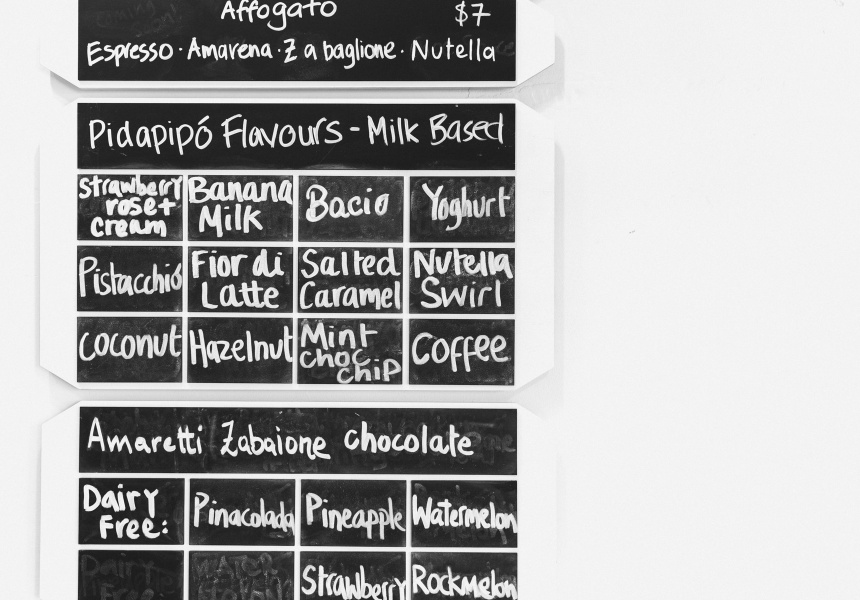 Affogato $7
Espresso · Amarena · Zabaglione · Nutella
Pidapipó Flavours - Milk Based
Strawberry rose + cream
Banana Milk
Bacio
Yoghurt
Pistacchio
Fior di Latte
Salted Caramel
Nutella Swirl
coconut
Hazelnut
Mint choc chip
Coffee
Amaretti Zabaione chocolate
Dairy Free:
Pinacolada
Pineapple
Watermelon
Dairy Free:
Strawberry
Rockmelon